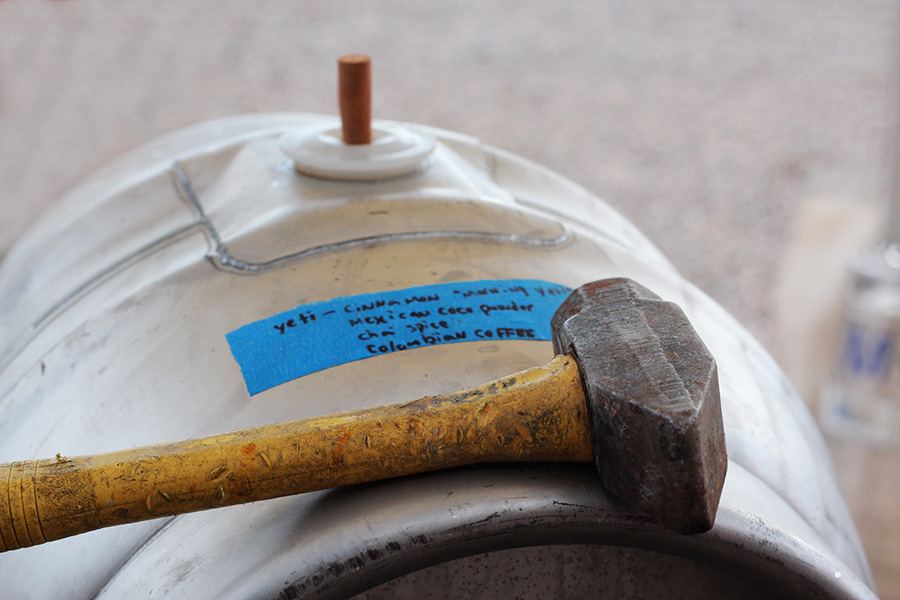 yeti - CiNNAMON
MexicAN coco powder
chai spice
Colombian COFFEE